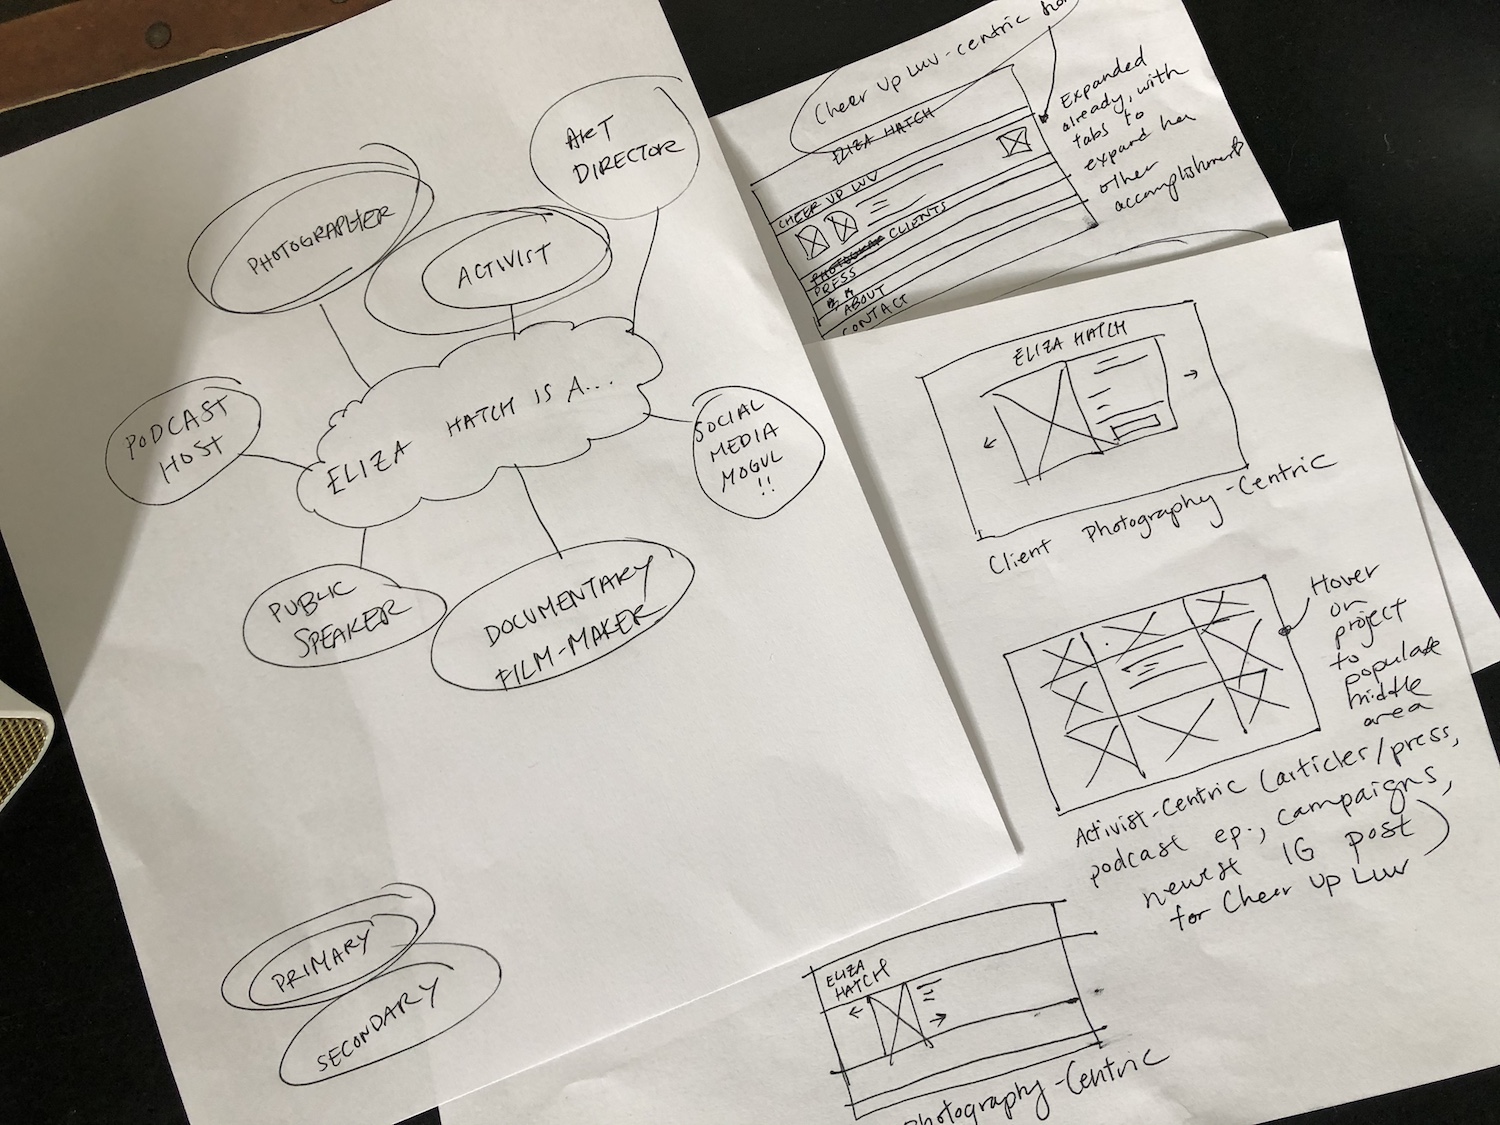 ART
DIRECTOR
PHOTOGRAPHER
ACTIVIST
PODCAST
HOST
ELIZA HATCH IS A...
SOCIAL
MEDIA
MOGUL
!!
PUBLIC
SPEAKER
DOCUMENTARY
FILM-MAKER
PRIMARY
SECONDARY
Cheer Up Luv-centric
ELIZA HATCH
CHEER UP LUV
CLIENTS
PRESS
ABOUT
CONTACT
Expanded
already, with
tabs to
expand her
other
accomplishments
ELIZA HATCH
Client Photography-Centric
Hover
on
project
to
populate
middle
area
Activist-Centric (articles/press,
podcast ep., campaigns,
newest IG post)
for Cheer Up Luv
ELIZA
HATCH
Photography-Centric